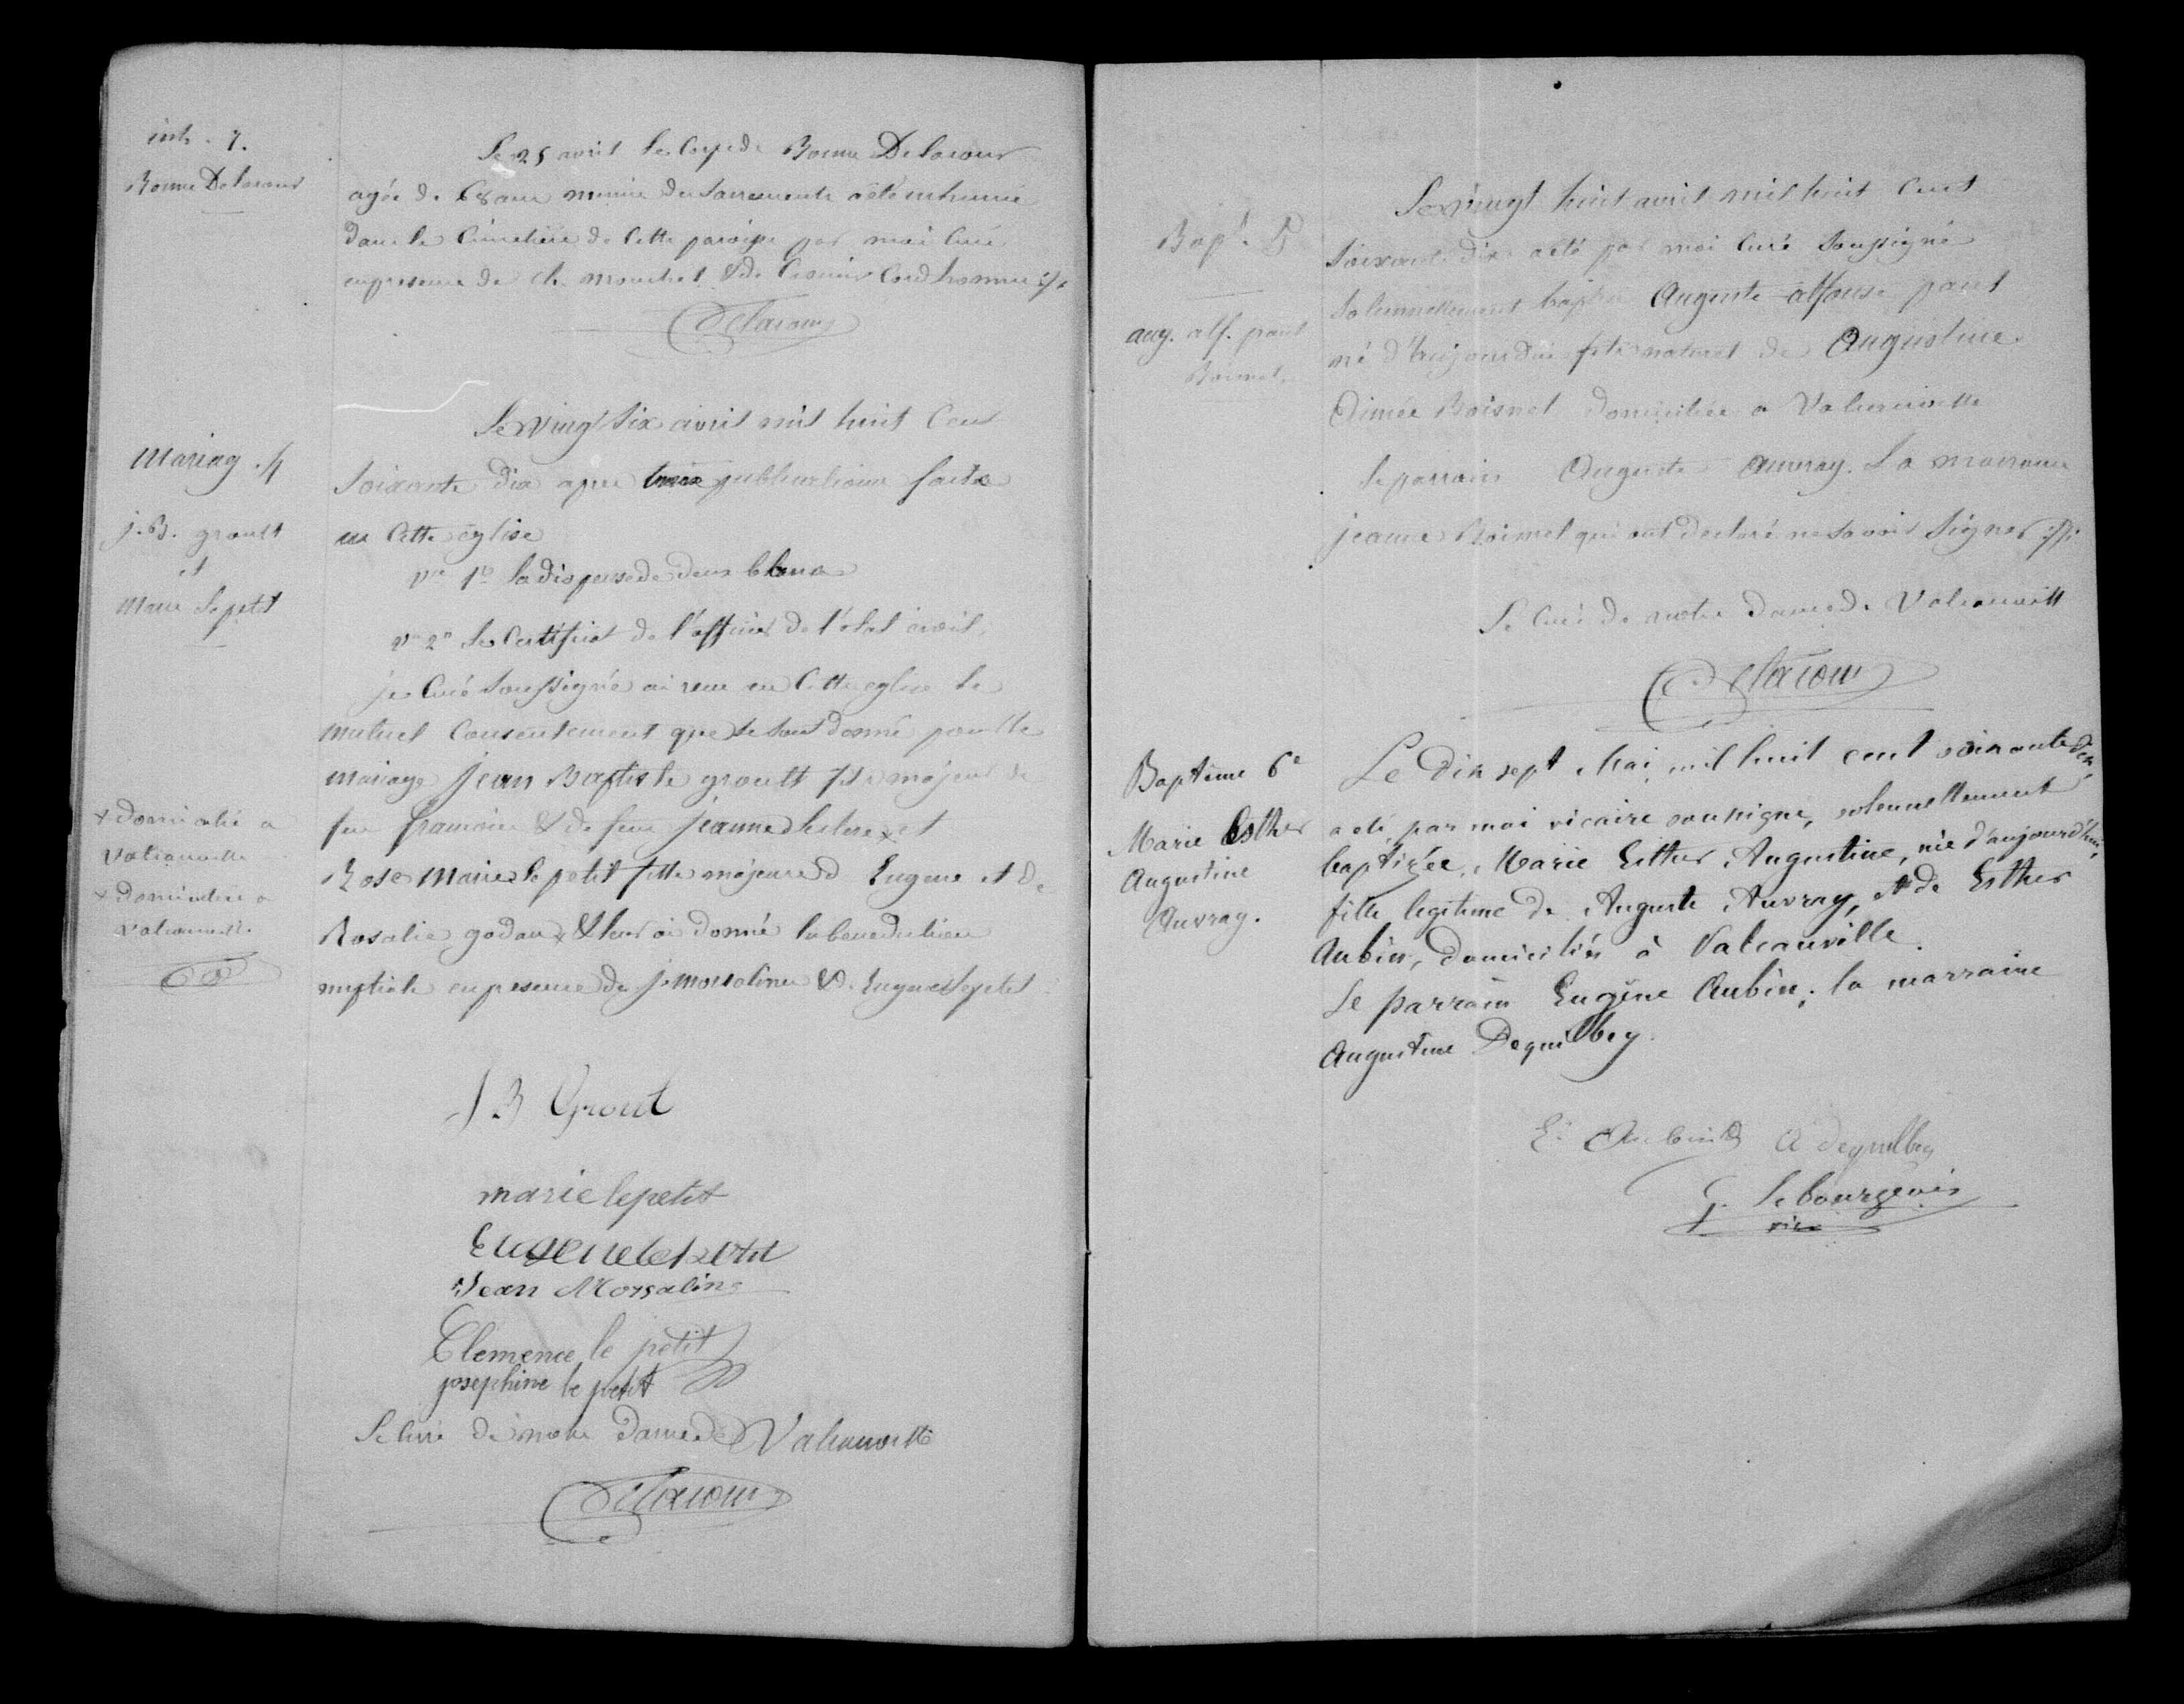 inh. 7.
Bonne Delacour
Le 25 avril le corps de Bonne Delacour
agée de 68 ans munie des sacrements a été inhumé
dans le cimetière de cette paroisse par moi curé
en presence de ch. mouchel & de
Delacour
Mariag. 4
j. B. groult
et
Marie Lepetit
Le vingt six avril mil huit cent
soixante dix apres publications faites
en cette église
vu 1º la dispense de deux bans
vu 2º le certificat de l'officier de l'état civil,
je curé soussigné ai recu en cette eglise le
mutuel consentement que se sont donné pour le
mariage jean Baptiste groult fils majeur de
feu francois & de feue jeanne x et
Rose Marie le petit fille majeure d Eugene et de
Rosalie godan x & leur ai donné la benediction
nuptiale en presence de j. morsaline & d. Eugene Lepetit
x domicilié a
Valcanville
x domiciliée a
Valcanville
J B Grout
marie lepetit
Eugene le petit
Jean Morsaline
Clemence le petit
josephine le petit
Le curé de notre Dame de Valcanville
Delacour
Bapt. 5
aug. alf. paul
Boisnel
Le vingt huit avril mil huit cent
soixante dix a été par moi curé soussigné
solennellement baptisé Auguste alfonse paul
né d'aujourdui fils naturel de Augustine
Aimée Boisnel domiciliée a Valcanville
le parrain Auguste Auvray. La marraine
jeanne Boisnel qui ont declaré ne savoir signer
Le curé de notre Dame de Valcanvill
Delacour
Baptême 6e
Marie Esther
Augustine
Auvray.
Le dix sept Mai mil huit cent soixante dix,
a été, par moi vicaire soussigné, solennellement
baptizée, Marie Esther Augustine, née d'aujourd'hui,
fille legitime de Auguste Auvray, et de Esther
Aubin, domiciliés à Valcanville.
Le parrain Eugène Aubin; la marraine
Augustine Dequilbey.
E. Aubin A dequilbey
G. Lebourgeois
vicr